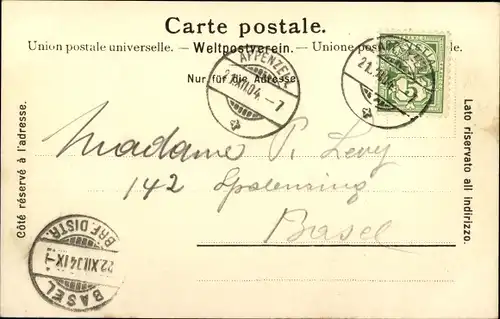 Carte postale.
Union postale universelle. — Weltpostverein. — Unione postale universale.
Nur für die Adresse.
APPENZELL
21.XII.04.-7
21.XII.04
5
Côté réservé à l'adresse.
Lato riservato all indirizzo.
Madame P. Levy
142 Spalenring
Basel
BRF. DISTR.
22.XII.04 IX-1
BASEL